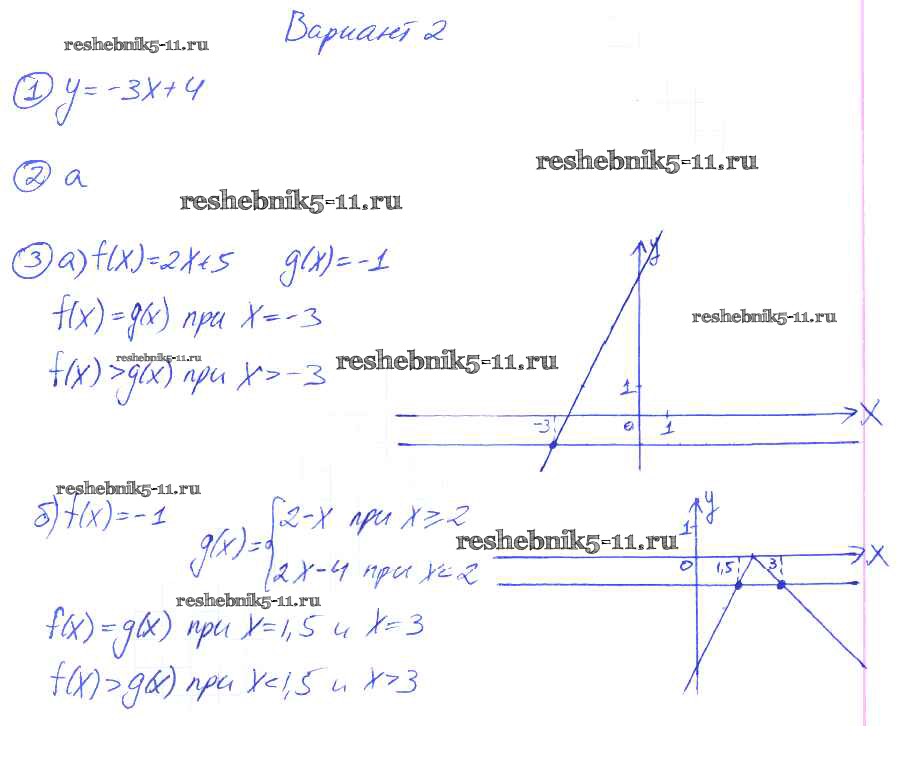 Вариант 2
reshebnik5-11.ru
1 y = -3x + 4
reshebnik5-11.ru
2 а
reshebnik5-11.ru
3 а) f(x) = 2x + 5 g(x) = -1
f(x) = g(x) при x = -3
reshebnik5-11.ru
reshebnik5-11.ru
reshebnik5-11.ru
f(x) > g(x) при x > -3
y
1
-3 0 1 x
reshebnik5-11.ru
б) f(x) = -1
g(x) = { 2-x при x ≥ 2
2x-4 при x < 2
reshebnik5-11.ru
y
1
0 1,5 3 x
reshebnik5-11.ru
f(x) = g(x) при x = 1,5 и x = 3
f(x) > g(x) при x < 1,5 и x > 3